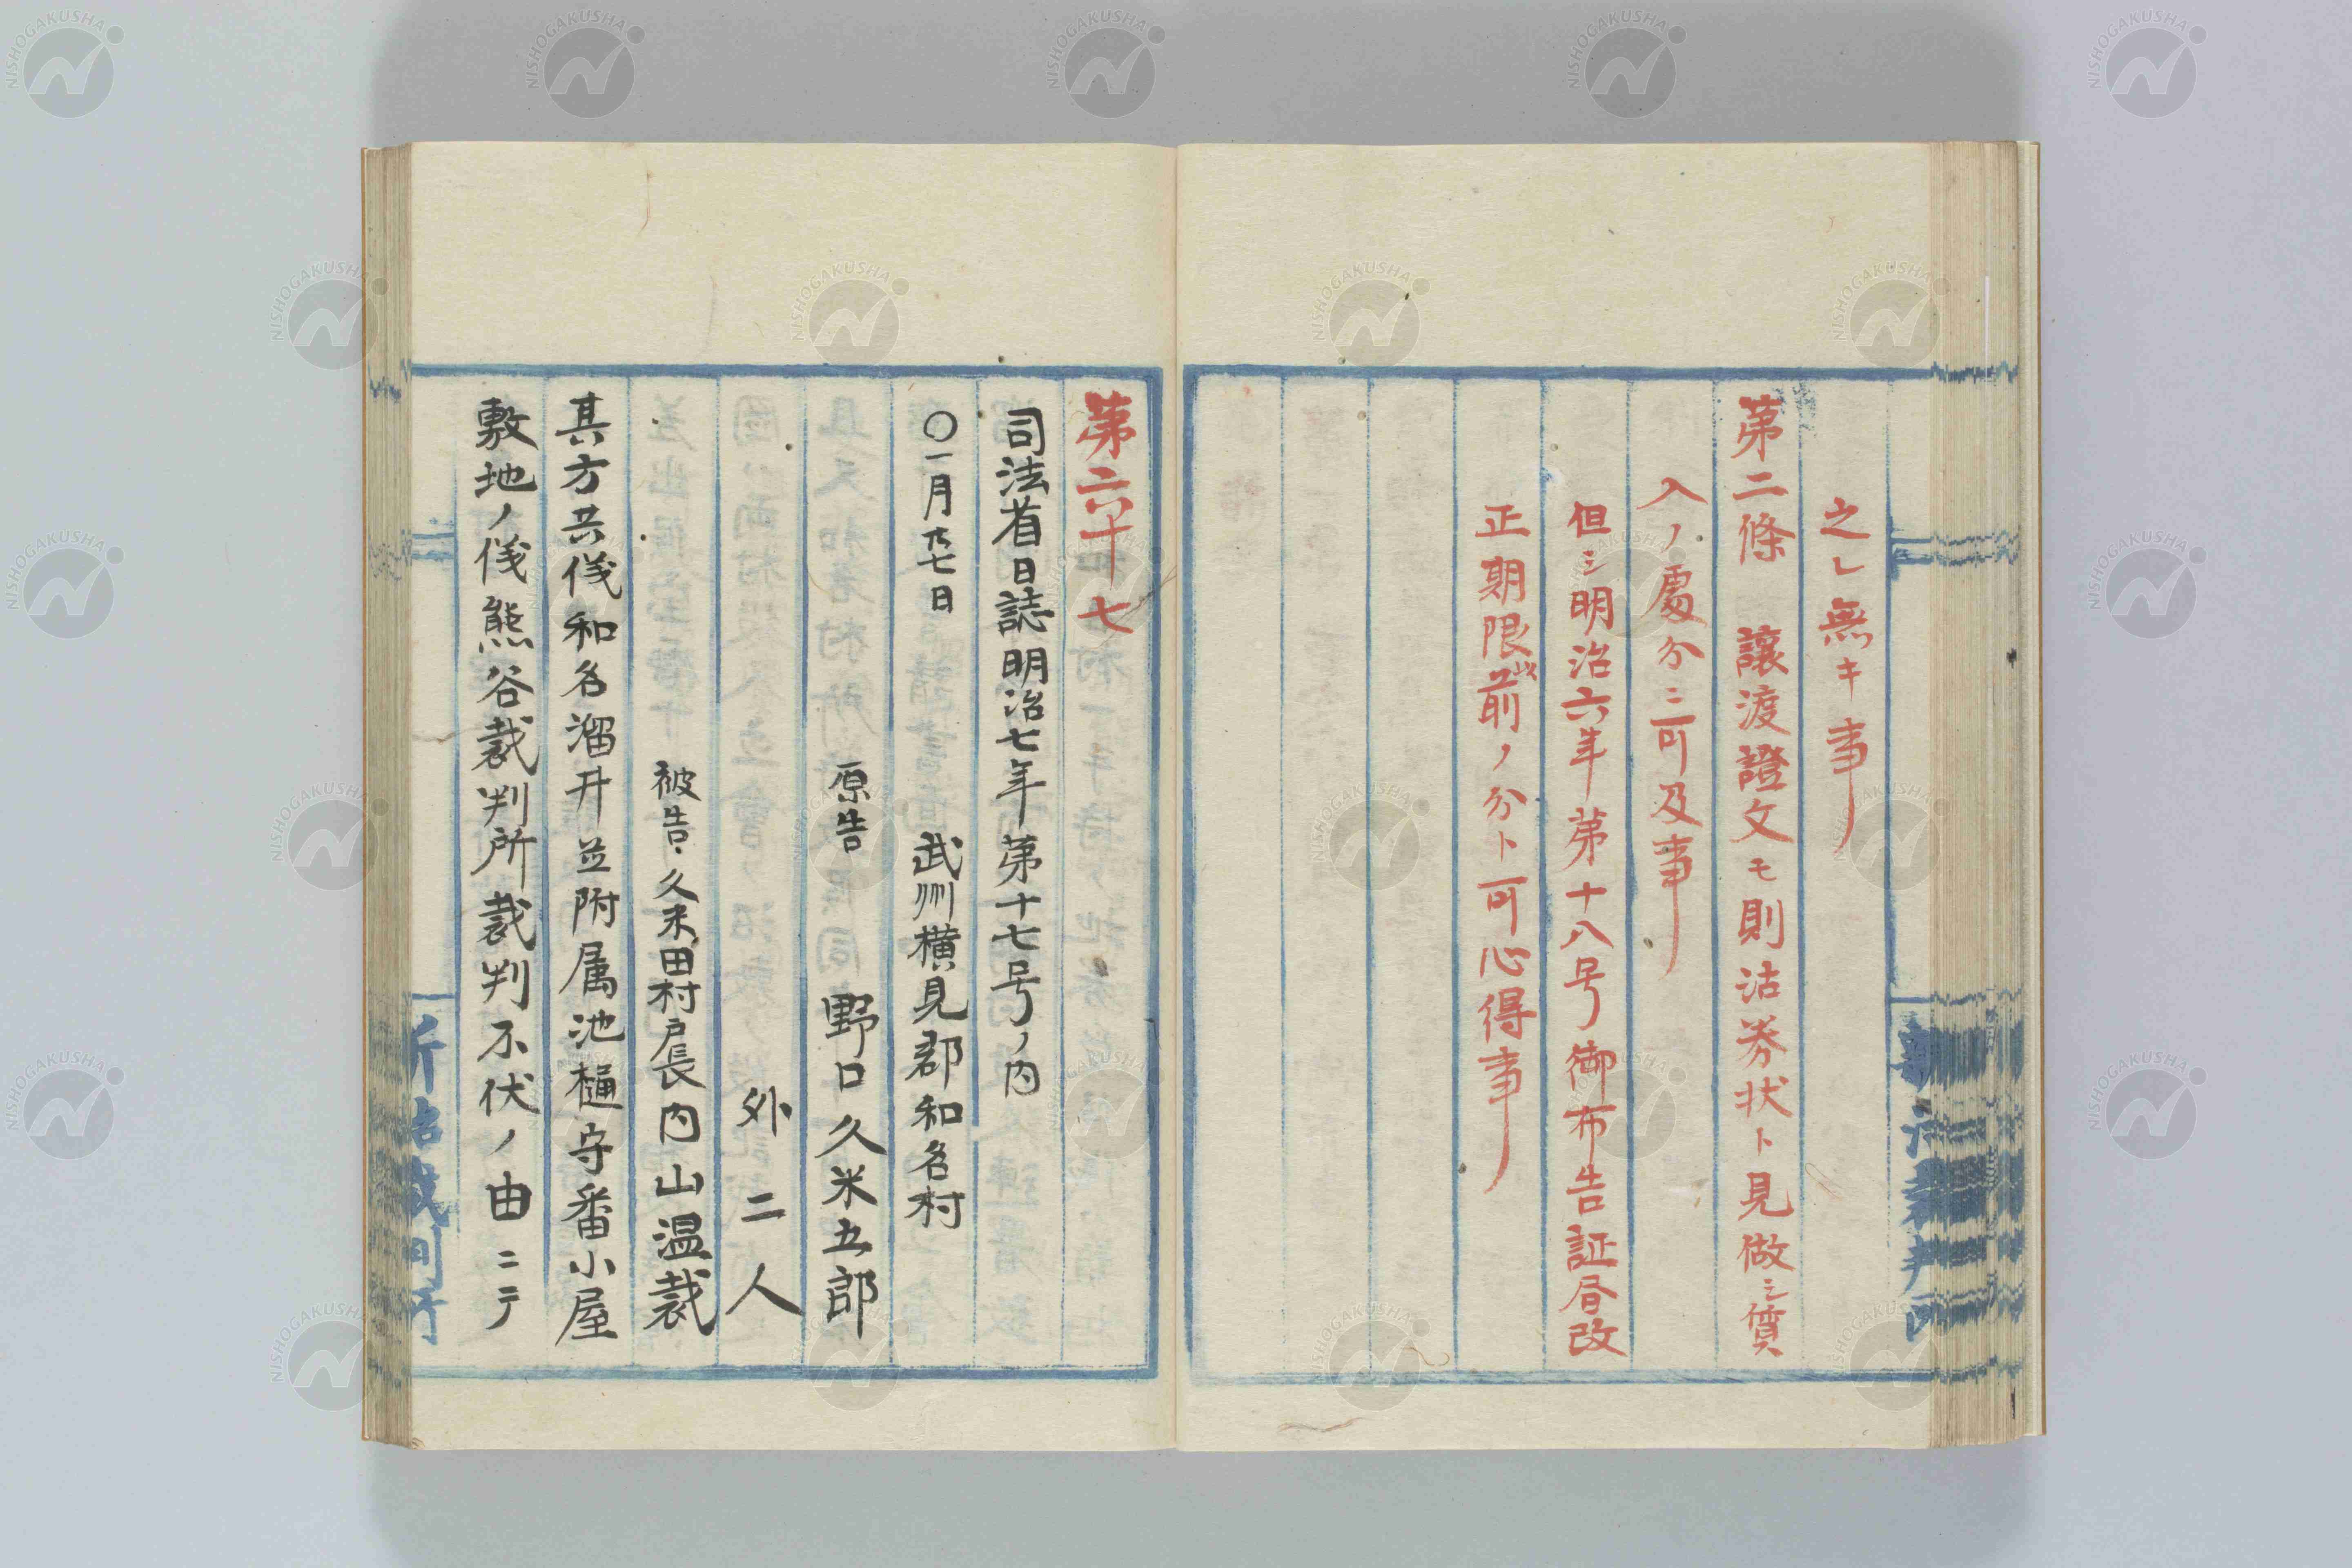 之レ無キ事
第二條　讓渡證文モ則沽券状ト見做シ質
入ノ處分ニ可及事
但シ明治六年第十八号御布告証&#x5C40;改
正期限前ノ分ト可心得事
第六十七
司法省日誌明治七年第十七号ノ内
〇一月廿七日
武州横見郡和名村
原告　野口久米五郎
外二人
被告　久米田村戸長内山温裁
其方共儀和名溜井並附属池樋守番小屋
敷地ノ儀熊谷裁判所裁判不伏ノ由ニテ
新治裁判所
NISHOGAKUSHA